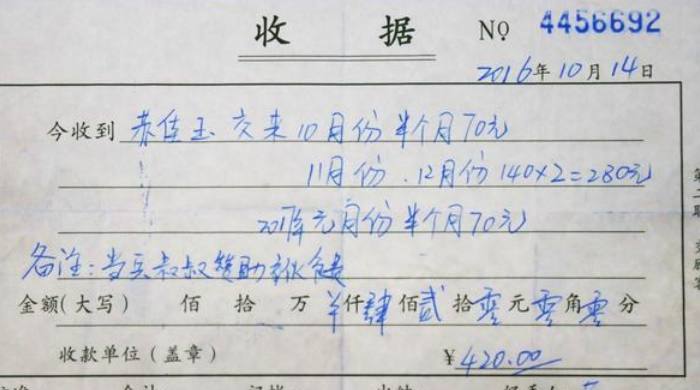 收据 No 4456692
2016年10月14日
今收到 赤佳玉交来10月份半个月70元
11月份.12月份140×2=280元
2017年元月份半个月70元
备注:当兵叔叔赞助伙食费
金额(大写) 佰 拾 万 ¥仟肆佰贰拾零元零角零分
收款单位(盖章) ¥420.00